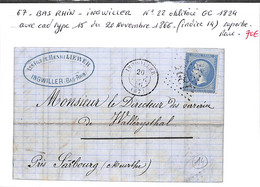 67 - BAS RHIN - INGWILLER - N° 22 oblitéré GC 1824
avec cad type 15 du 20 novembre 1866 - (indice 14) superbe
Rare - 90€
VEUVE DE HENRI LIEWER
INGWILLER (BAS-RHIN)
20
Monsieur le Directeur des
de
Walleysthal
Près Sarbourg (Meurthe)